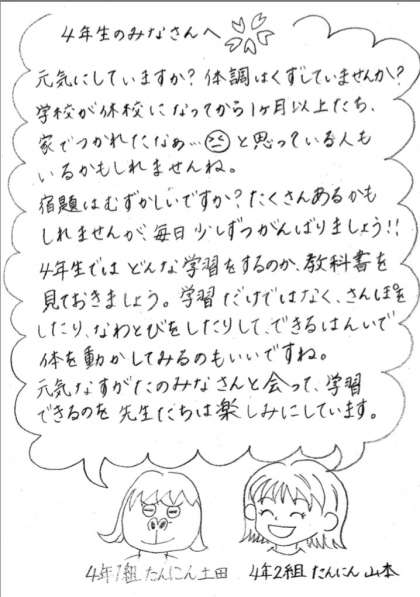 4年生のみなさんへ
元気にしていますか？体調はくずしていませんか？
学校が休校になってから1ヶ月以上たち、
家でつかれたなぁ…と思っている人も
いるかもしれませんね。
宿題はむずかしいですか？たくさんあるかも
しれませんが、毎日少しずつがんばりましょう!!
4年生ではどんな学習をするのか、教科書を
見ておきましょう。学習だけではなく、さんぽを
したり、なわとびをしたりして、できるはんいで
体を動かしてみるのもいいですね。
元気なすがたのみなさんと会って、学習
できるのを先生たちは楽しみにしています。
4年1組 たんにん 土田 4年2組 たんにん 山本